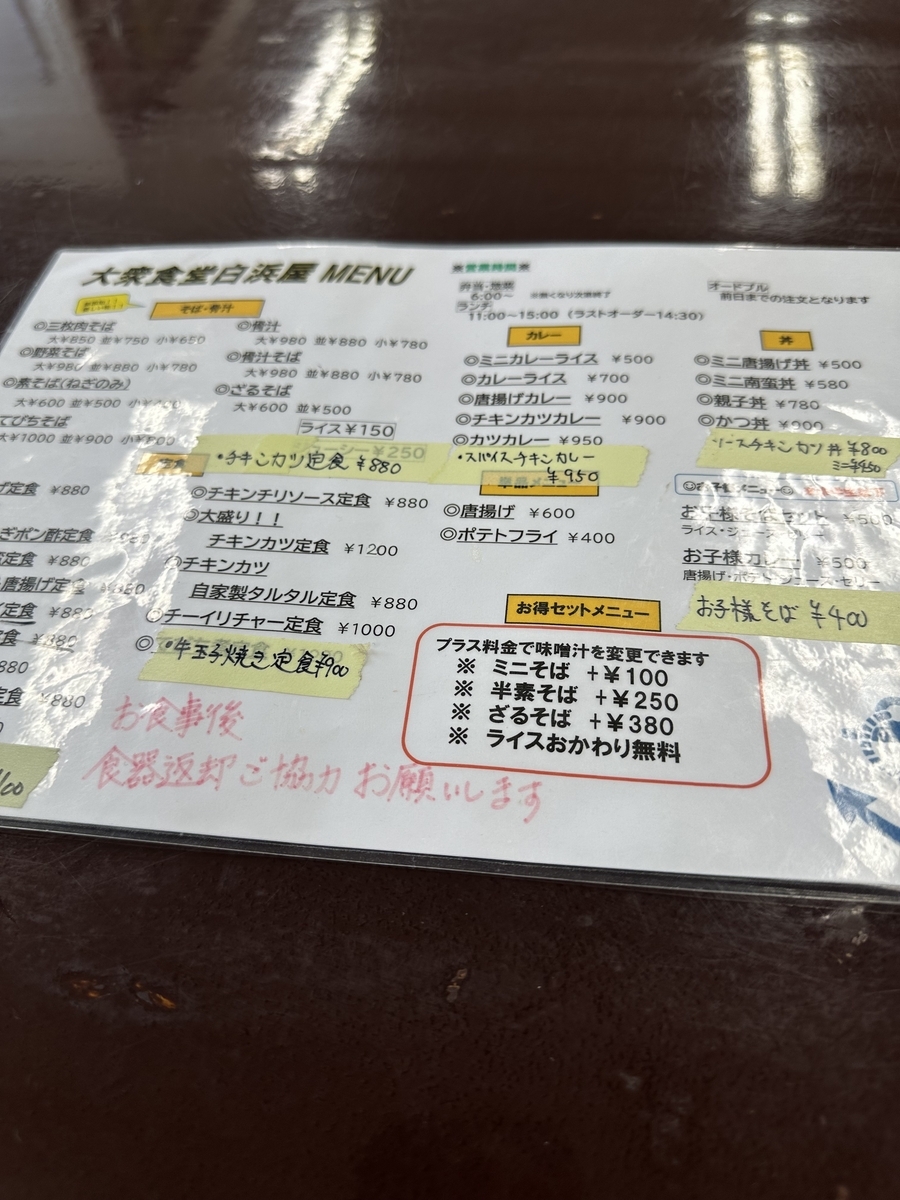 大衆食堂白浜屋 MENU
※営業時間※
弁当・惣菜
6:00~ ※無くなり次第終了
ランチ
11:00~15:00 (ラストオーダー14:30)
オードブル
前日までの注文となります
そば・骨汁
◎三枚肉そば
大¥850 並¥750 小¥650
◎野菜そば
大¥980 並¥880 小¥780
◎素そば(ねぎのみ)
大¥600 並¥500
てびちそば
大¥1000 並¥900 小¥800
◎骨汁
大¥980 並¥880 小¥780
◎骨汁そば
大¥980 並¥880 小¥780
◎ざるそば
大¥600 並¥500
ライス¥150
¥250
定食
・チキンカツ定食 ¥880
げ定食 ¥880
ぎポン酢定食
定食 ¥880
唐揚げ定食
定食 ¥880
定食 ¥880
定食 ¥880
◎チキンチリソース定食 ¥880
◎大盛り!!
チキンカツ定食 ¥1200
◎チキンカツ
自家製タルタル定食 ¥880
◎チーイリチャー定食 ¥1000
◎
・牛玉子焼き定食 ¥900
カレー
◎ミニカレーライス ¥500
◎カレーライス ¥700
◎唐揚げカレー ¥900
◎チキンカツカレー ¥900
◎カツカレー ¥950
・スパイスチキンカレー
¥950
単品メニュー
◎唐揚げ ¥600
◎ポテトフライ ¥400
丼
◎ミニ唐揚げ丼 ¥500
◎ミニ南蛮丼 ¥580
◎親子丼 ¥780
◎かつ丼 ¥900
ソースチキンカツ丼 ¥800
ミニ¥450
お子様 ¥500
お子様カレー ¥500
お子様そば ¥400
お得セットメニュー
プラス料金で味噌汁を変更できます
※ ミニそば +¥100
※ 半素そば +¥250
※ ざるそば +¥380
※ ライスおかわり無料
お食事後
食器返却ご協力お願いします